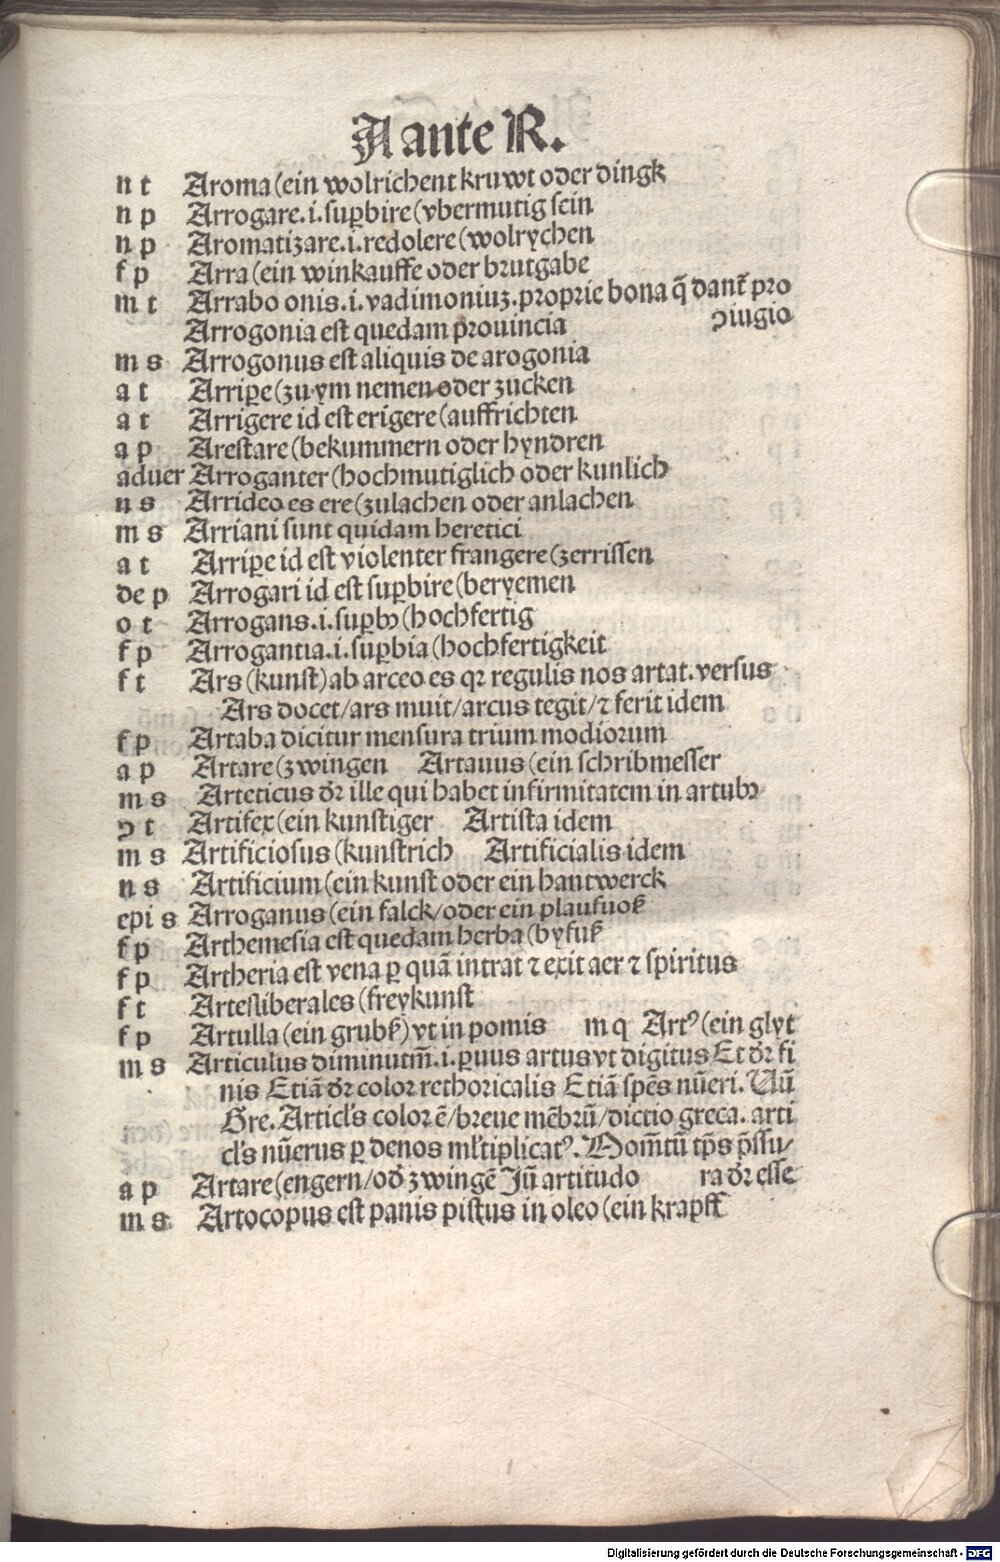 A ante R.
n t Aroma (ein wolrichent kruwt oder dingk
n p Arrogare .i. suꝑbire (vbermutig sein
n p Aromatizare .i. redolere (wolrychen
f p Arra (ein winkauffe oder brutgabe
m t Arrabo onis .i. vadimoniuz. proprie bona q̄ dant̄ pro
Arrogonia est quedam prouincia ꝯiugio
m s Arrogonus est aliquis de arogonia
a t Arriꝑe (zu ym nemen oder zucken
a t Arrigere id est erigere (auffrichten
a p Arestare (bekummern oder hyndren
aduer Arroganter (hochmutiglich oder kunlich
n s Arrideo es ere (zulachen oder anlachen
m s Arriani sunt quidam heretici
a t Arriꝑe id est violenter frangere (zerrissen
de p Arrogari id est suꝑbire (beryemen
o t Arrogans .i. suꝑbꝰ (hochfertig
f p Arrogantia .i. suꝑbia (hochfertigkeit
f t Ars (kunst) ab arceo es qꝛ regulis nos artat. versus
Ars docet/ars muit/arcus tegit/⁊ ferit idem
f p Artaba dicitur mensura trium modiorum
a p Artare (zwingen Artauus (ein schribmesser
m s Arteticus dr̄ ille qui habet infirmitatem in artubꝰ
ꝯ t Artifex (ein kunstiger Artista idem
m s Artificiosus (kunstrich Artificialis idem
n s Artificium (ein kunst oder ein hantwerck
epi s Arroganus (ein falck/oder ein
f p Arthemesia est quedam herba (byfuß
f p Artheria est vena ꝑ quā intrat ⁊ exit aer ⁊ spiritus
f t Artesliberales (freykunst
f p Artulla (ein) vt in pomis m q Artꝰ (ein glyt
m s Articulus diminutm̄ .i. ꝑuus artus vt digitus Et dr̄ fi
nis Etiā dr̄ color rethoricalis Etiā spēs nūeri. Vū
Gre. Articl's color ē/breue mēbrū/dictio greca. arti
cl's nūerus ꝑ denos ml'tiplicatꝰ. Nom̄tū tp̄s p̄ssu/
a p Artare (engern/od̄ zwingē Jū artitudo ra dr̄ esse
m s Artocopus est panis pistus in oleo (ein krapff
Digitalisierung gefördert durch die Deutsche Forschungsgemeinschaft - DFG